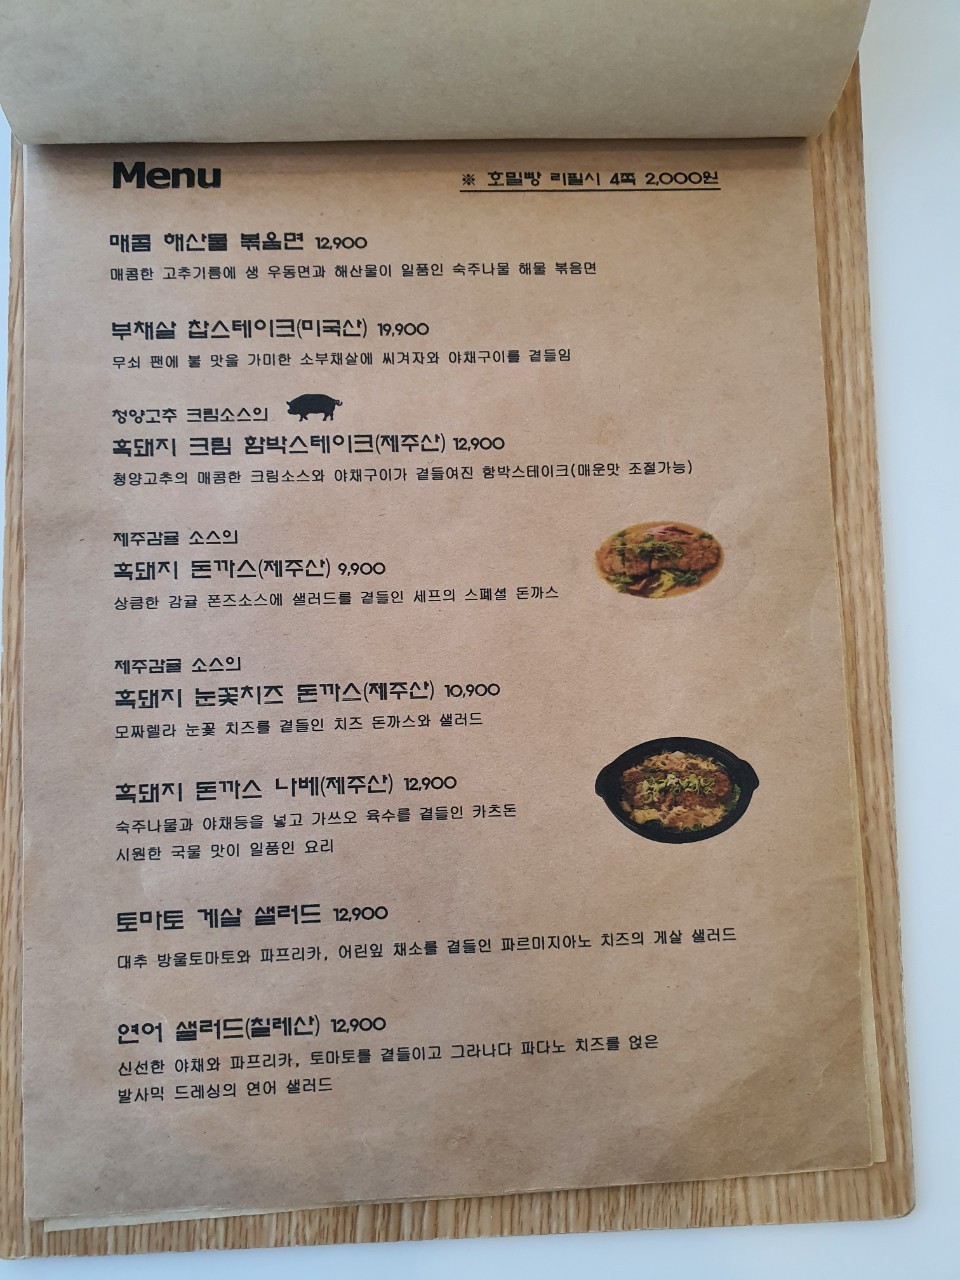 Menu
※ 호밀빵 리필시 4쪽 2,000원
매콤 해산물 볶음면 12,900
매콤한 고추기름에 생 우동면과 해산물이 일품인 숙주나물 해물 볶음면
부채살 찹스테이크(미국산) 19,900
무쇠 팬에 불 맛을 가미한 소부채살에 씨겨자와 야채구이를 곁들임
청양고추 크림소스의
흑돼지 크림 함박스테이크(제주산) 12,900
청양고추의 매콤한 크림소스와 야채구이가 곁들여진 함박스테이크(매운맛 조절가능)
제주감귤 소스의
흑돼지 돈까스(제주산) 9,900
상큼한 감귤 폰즈소스에 샐러드를 곁들인 셰프의 스페셜 돈까스
제주감귤 소스의
흑돼지 눈꽃치즈 돈까스(제주산) 10,900
모짜렐라 눈꽃 치즈를 곁들인 치즈 돈까스와 샐러드
흑돼지 돈까스 나베(제주산) 12,900
숙주나물과 야채등을 넣고 가쓰오 육수를 곁들인 카츠돈
시원한 국물 맛이 일품인 요리
토마토 게살 샐러드 12,900
대추 방울토마토와 파프리카, 어린잎 채소를 곁들인 파르미지아노 치즈의 게살 샐러드
연어 샐러드(칠레산) 12,900
신선한 야채와 파프리카, 토마토를 곁들이고 그라나다 파다노 치즈를 얹은
발사믹 드레싱의 연어 샐러드